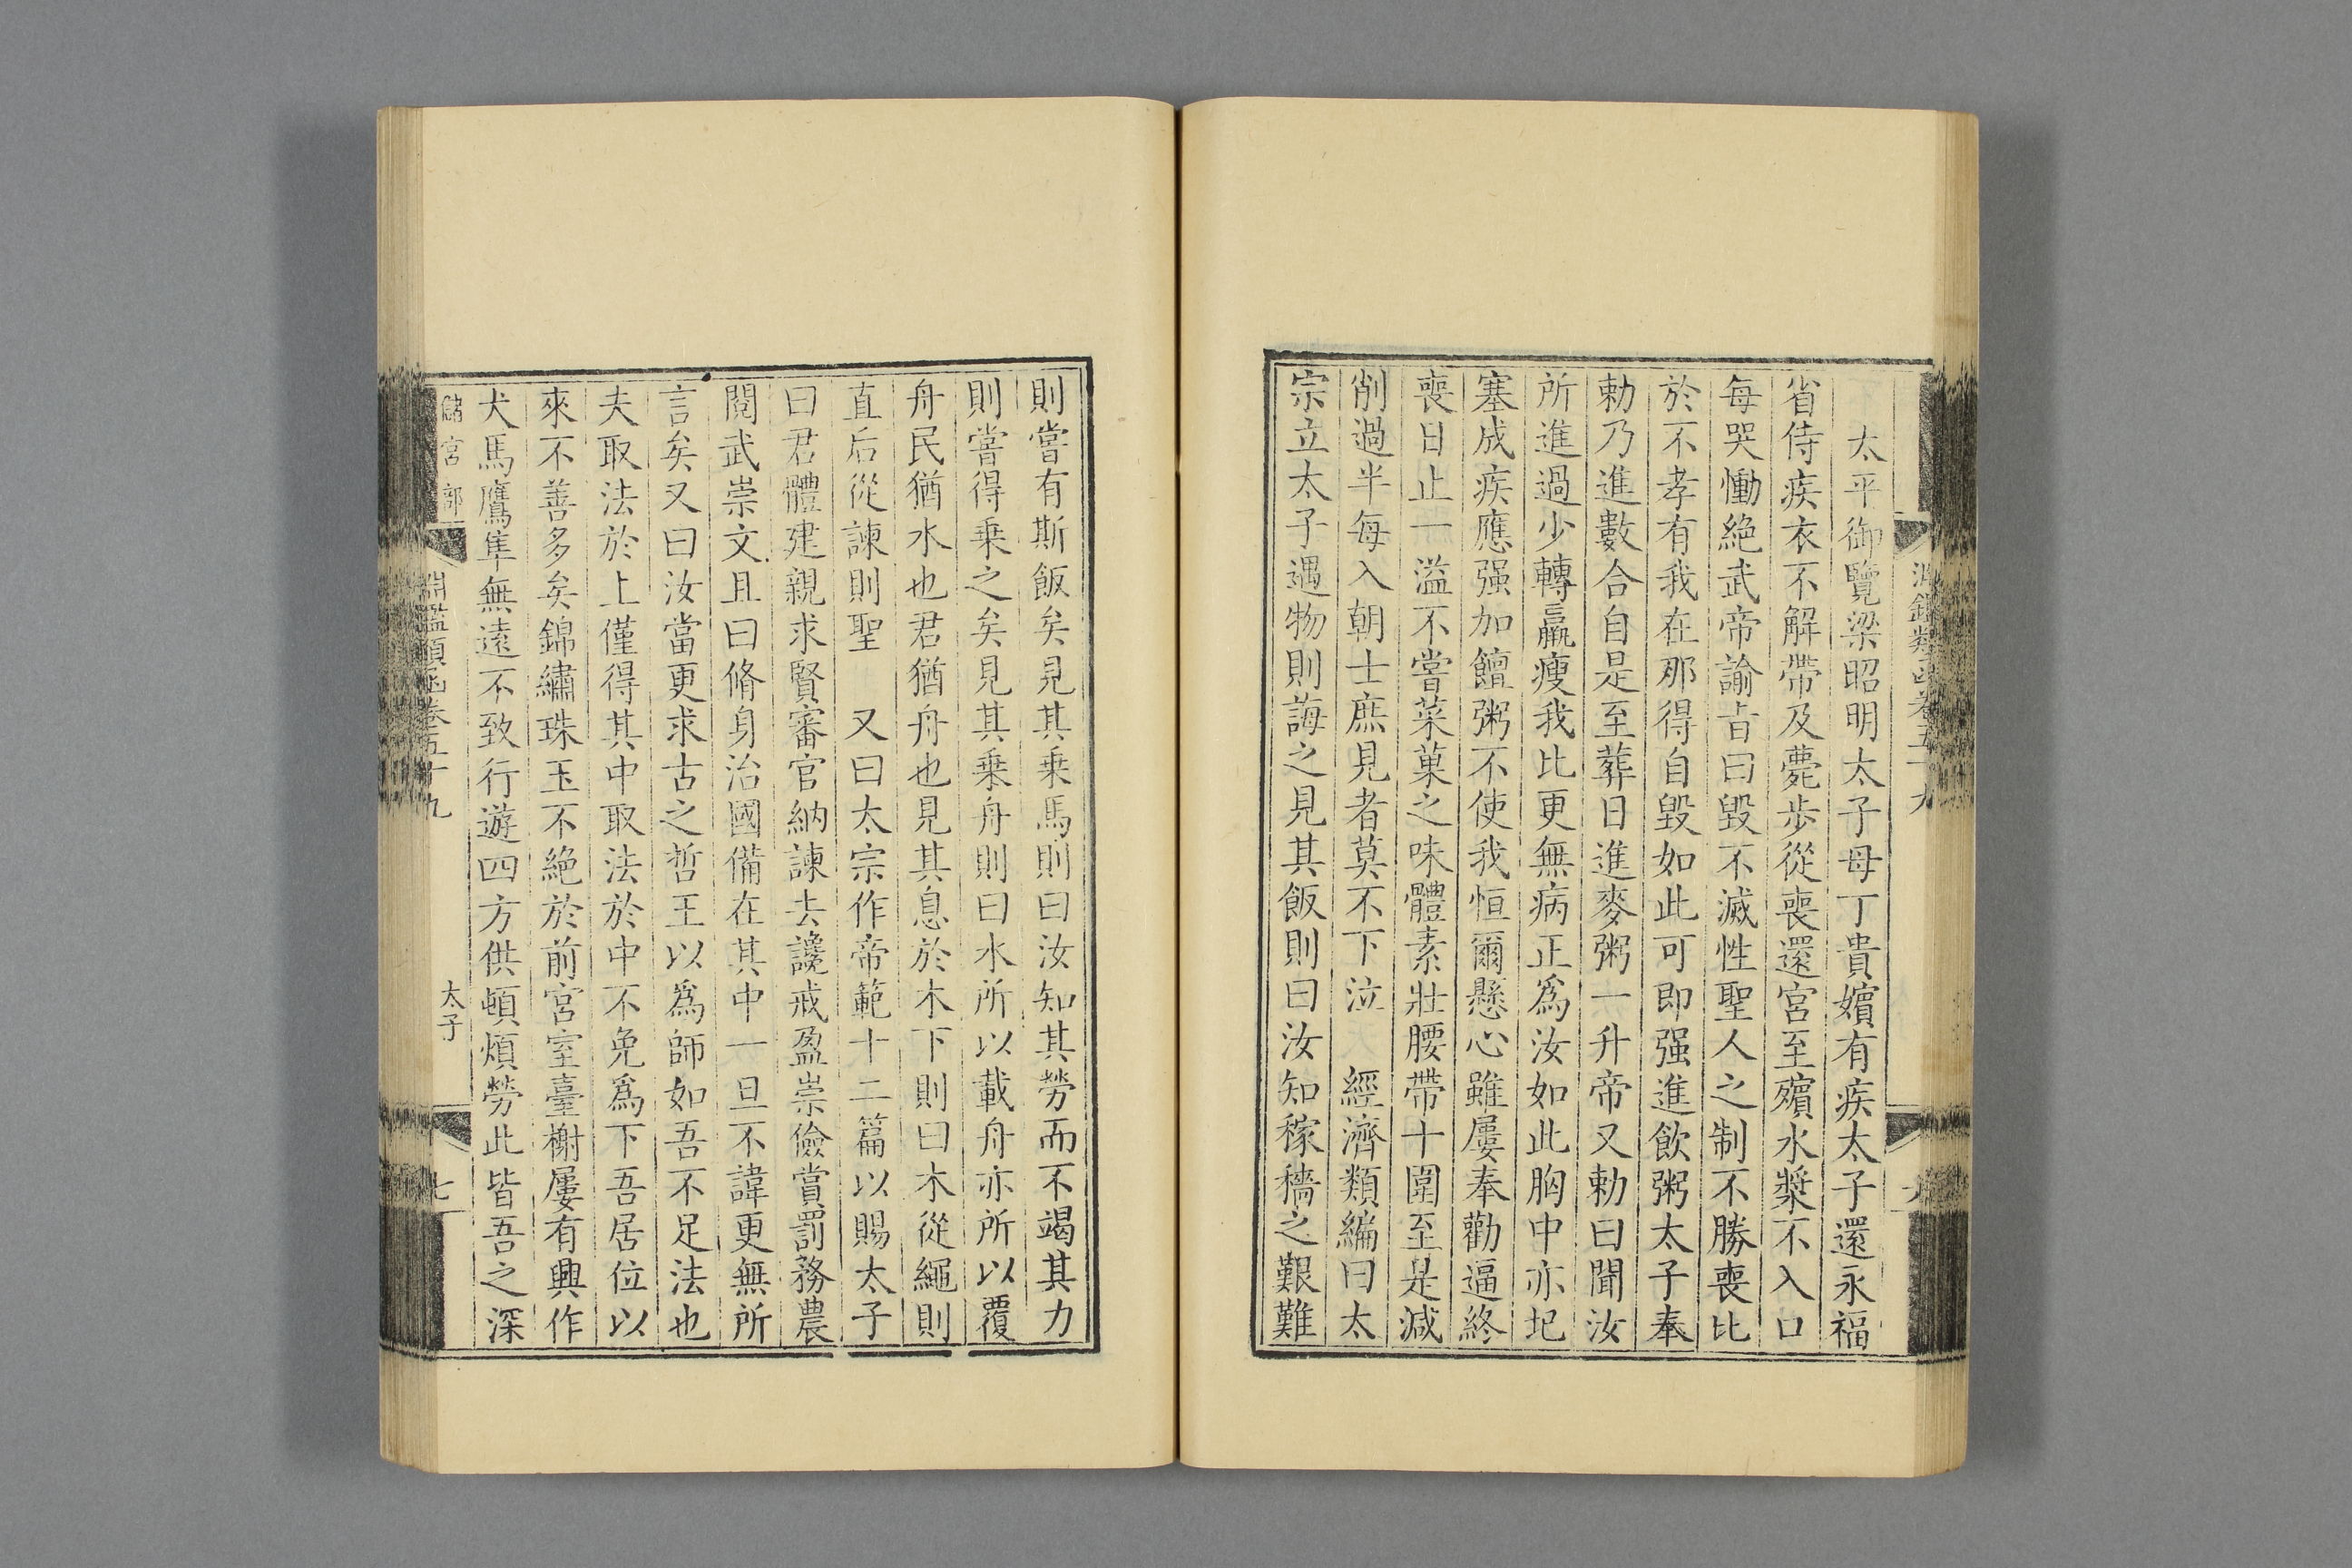 太平御覽梁昭明太子母丁貴嬪有疾太子還永福
省侍疾衣不解帶及薨步從喪還宮至殯水漿不入口
每哭慟絶武帝諭旨曰毀不滅性聖人之制不勝喪比
於不孝有我在那得自毀如此可即强進飲粥太子奉
勅乃進數合自是至葬日進麥粥一升帝又勅曰聞汝
所進過少轉羸瘦我比更無病正爲汝如此胸中亦圮
塞成疾應强加饘粥不使我恒爾懸心雖屢奉勸逼終
喪日止一溢不嘗菜菓之味體素壯腰帶十圍至是減
削過半每入朝士庶見者莫不下泣　經濟類編曰太
宗立太子遇物則誨之見其飯則曰汝知稼穡之艱難
則嘗有斯飯矣見其乗馬則曰汝知其勞而不竭其力
則嘗得乗之矣見其乗舟則曰水所以載舟亦所以覆
舟民猶水也君猶舟也見其息於木下則曰木從繩則
直后從諫則聖　又曰太宗作帝範十二篇以賜太子
曰君體建親求賢審官納諫去讒戒盈崇儉賞罰務農
閱武崇文且曰脩身治國備在其中一旦不諱更無所
言矣又曰汝當更求古之哲王以爲師如吾不足法也
夫取法於上僅得其中取法於中不免爲下吾居位以
來不善多矣錦繡珠玉不絶於前宮室臺榭屢有興作
犬馬鷹隼無遠不致行遊四方供頓煩勞此皆吾之深
儲宮部
淵鑑類函卷五十九
太子
七